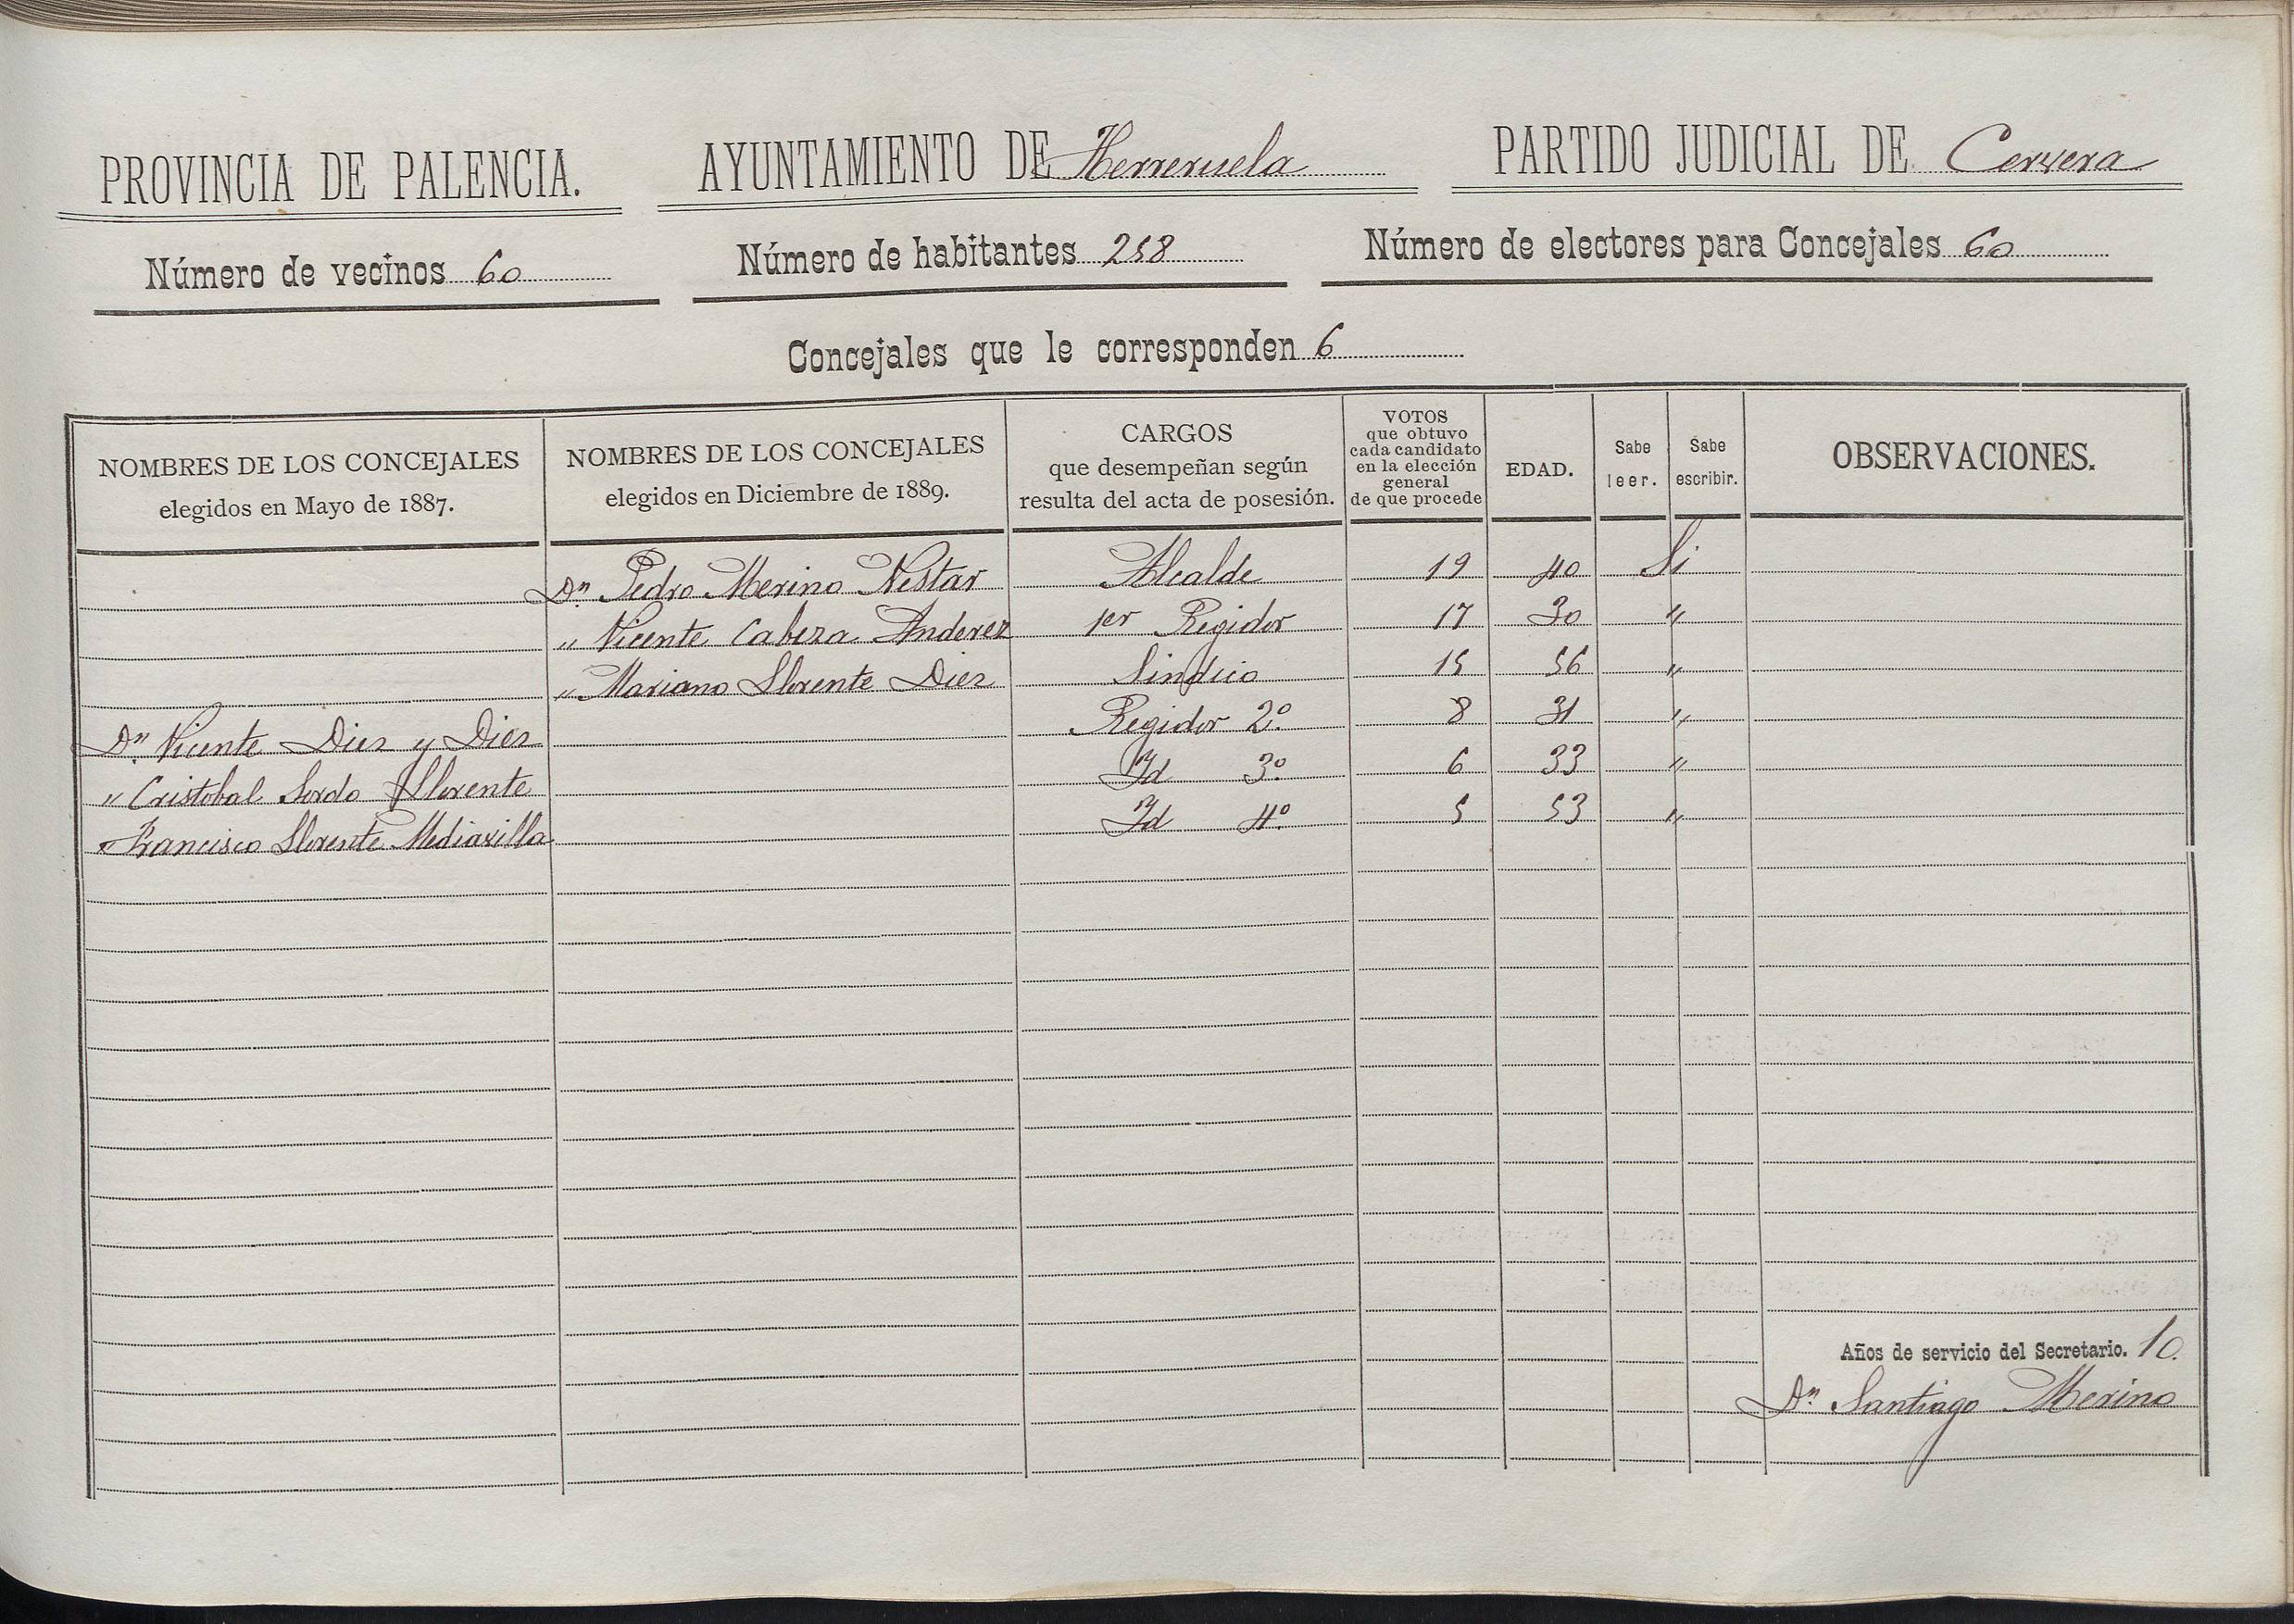 PROVINCIA DE PALENCIA. AYUNTAMIENTO DE Herreruela PARTIDO JUDICIAL DE Cervera
Número de vecinos 60 Número de habitantes 258 Número de electores para Concejales 60
Concejales que le corresponden 6
NOMBRES DE LOS CONCEJALES elegidos en Mayo de 1887. NOMBRES DE LOS CONCEJALES elegidos en Diciembre de 1889. CARGOS que desempeñan según resulta del acta de posesión. VOTOS que obtuvo cada candidato en la elección general de que procede EDAD. Sabe leer. Sabe escribir. OBSERVACIONES.
Dn. Pedro Merino Nestar Alcalde 19 40 Si
" Vicente Cabeza Anderez 1er Regidor 17 30 "
" Mariano Llorente Diez Sindico 15 56 "
Dn. Vicente Diez y Diez Regidor 2º 8 31 "
" Cristobal Sordo Llorente Id 3º 6 33 "
" Francisco Llorente Mediavilla Id 4º 5 53 "
Años de servicio del Secretario. 10.
Dn. Santiago Merino